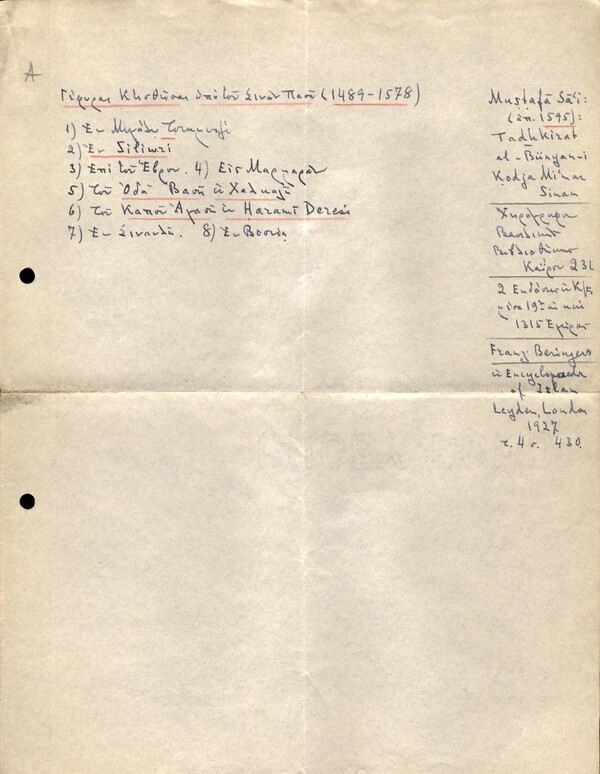 A
Γέφυραι Κτισθεῖσαι ὑπὸ τοῦ Σινὰν Πασᾶ (1489-1578)
1) Ἐν Μεγάλῳ
2) Ἐν Siliwri
3) Ἐπὶ τοῦ Ἕβρου. 4) Εἰς Μαρμαρᾶν
5) Τοῦ Ὀδᾶ Βασῆ ἐν Χαλκαλῇ
6) Τοῦ Καποῦ Ἀγασῆ ἐν Harami Deresi
7) Ἐν Σινανλῇ. 8) Ἐν Βοσνίᾳ
Muṣṭafā Sā'i:
(ἀπ. 1595):
Tadhkirat
al-Bünyan-i
Ḳodja Mi'mar
Sinan
Χειρόγραφον
Βασιλικῆς
Βιβλιοθήκης
Καΐρου 231
2 Ἐκδόσεις ἐν Κ/π
μέσα 19ου αἰ. καὶ
1315 Ἐγίρας
Franz
ἐν Encyclopaedia
of Islam
Leyden, London
1927
τ. 4 σ. 430.